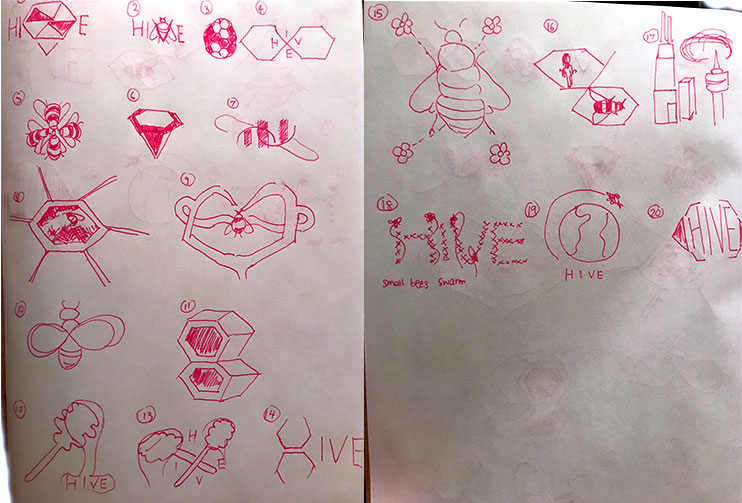 HI E
② HI E
③
④
I
H V
E
⑤
⑥
⑦
⑧
⑨
⑩
⑪
⑫
HIVE
⑬
H
I E
V
⑭
IVE
⑮
⑯
⑰
⑱
HIVE
small bees swarm
⑲
HIVE
⑳
HIVE